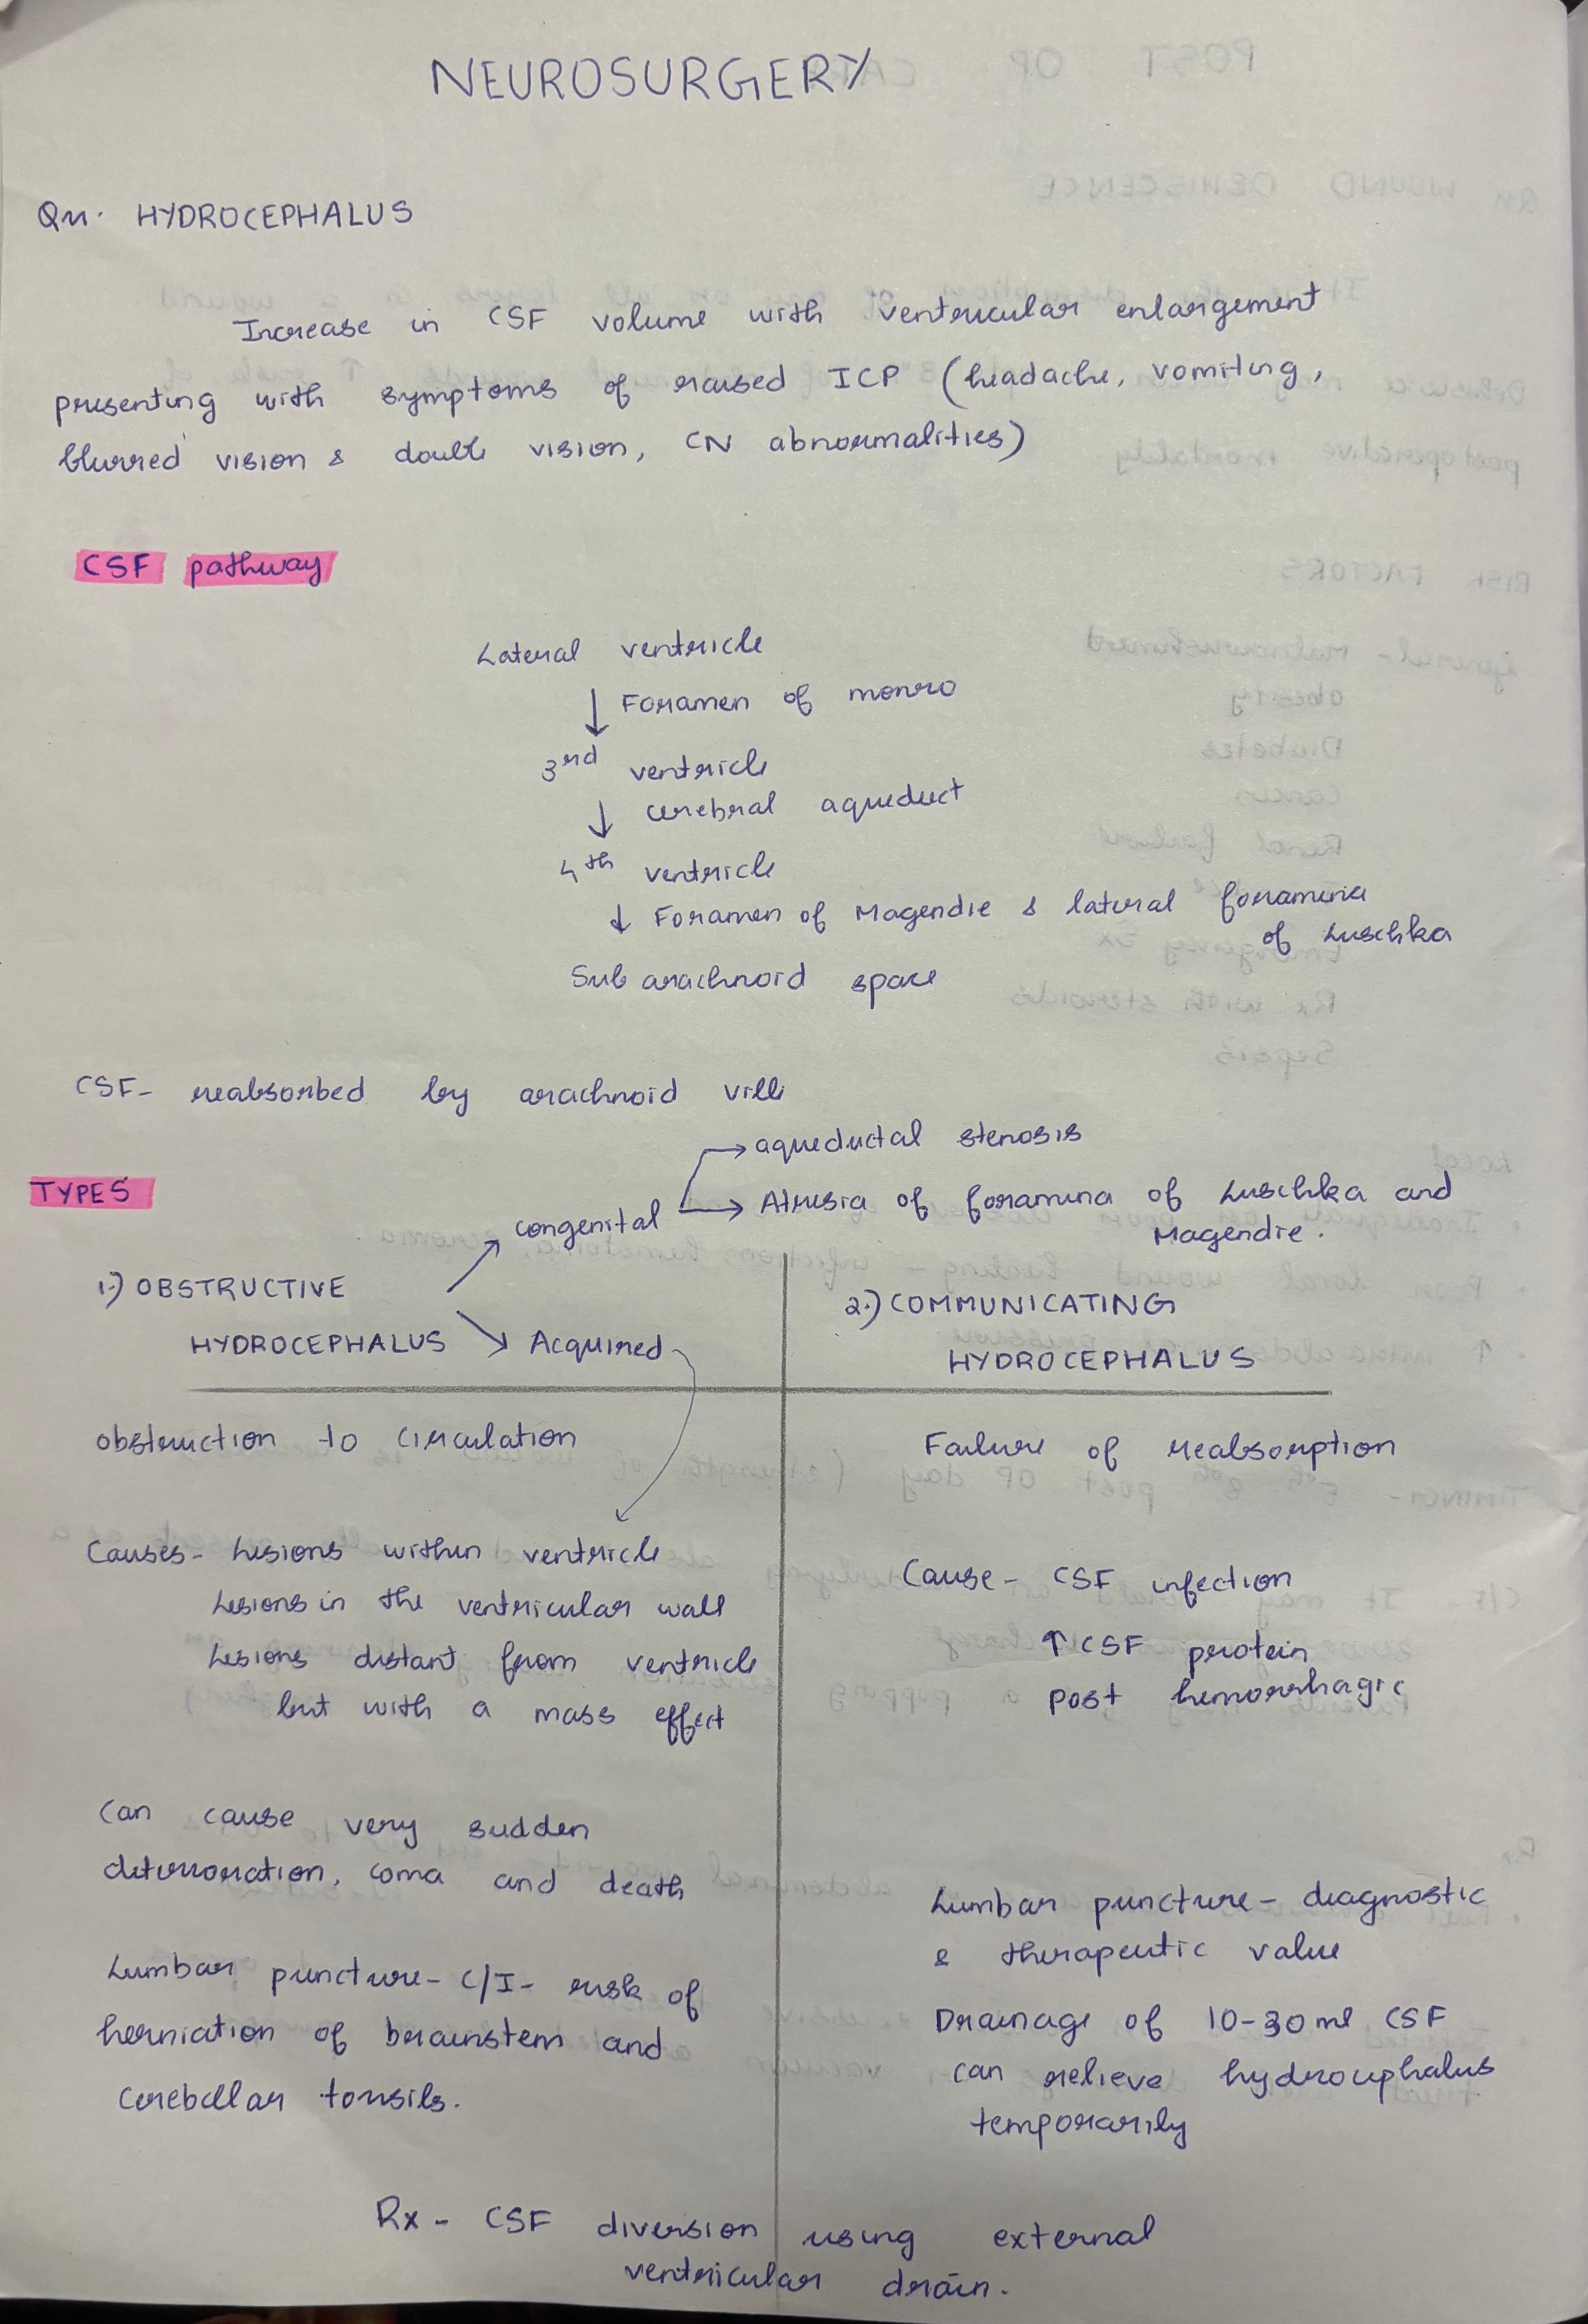 NEUROSURGERY
Qn. HYDROCEPHALUS
Increase in CSF volume with ventricular enlargement
presenting with symptoms of raised ICP (headache, vomiting,
blurred vision & double vision, CN abnormalities)
CSF pathway
Lateral ventricle
↓ Foramen of monro
3rd ventricle
↓ cerebral aqueduct
4th ventricle
↓ Foramen of Magendie & lateral foramina
of Luschka
Sub arachnoid space
CSF- reabsorbed by arachnoid villi
→ aqueductal stenosis
TYPES
congenital → Atresia of foramina of Luschka and
Magendie.
1.) OBSTRUCTIVE
HYDROCEPHALUS → Acquired
obstruction to circulation
Causes- Lesions within ventricle
Lesions in the ventricular wall
Lesions distant from ventricle
but with a mass effect
Can cause very sudden
deterioration, coma and death
Lumbar puncture- C/I- risk of
herniation of brainstem and
cerebellar tonsils.
2.) COMMUNICATING
HYDROCEPHALUS
Failure of reabsorption
Cause- CSF infection
↑ CSF protein
post hemorrhagic
Lumbar puncture- diagnostic
& therapeutic value
Drainage of 10-30ml CSF
can relieve hydrocephalus
temporarily
Rx- CSF diversion using external
ventricular drain.